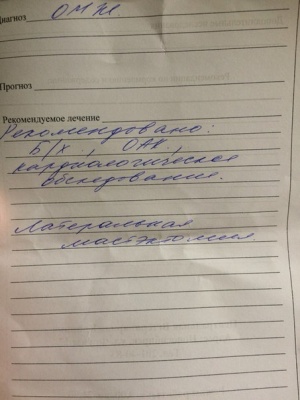 Диагноз ОМЖ.
Прогноз
Рекомендуемое лечение
Рекомендовано:
Б/х, ОАК,
кардиологическое
обследование.
Латеральная
мастэктомия